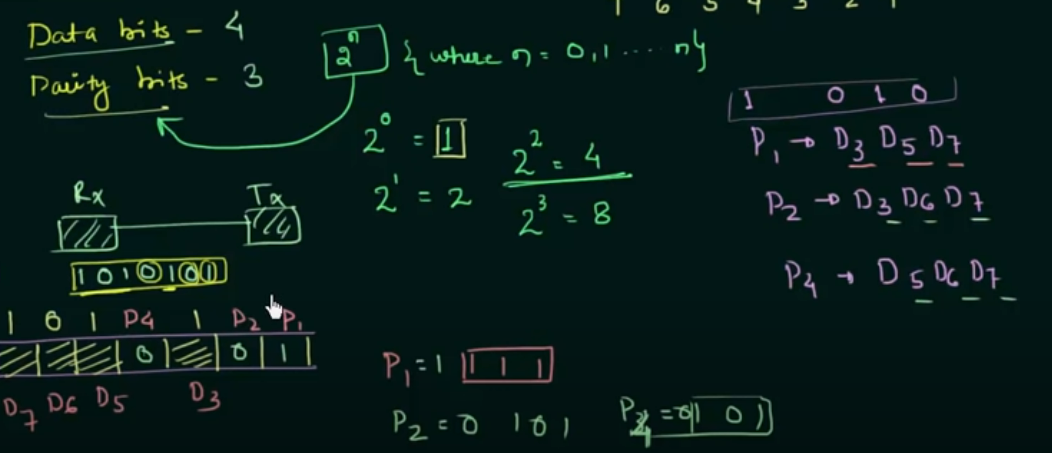 7 6 5 4 3 2 1
Data bits - 4
Parity bits - 3
2^n { where n = 0, 1 ..... n}
2^0 = 1
2^1 = 2
2^2 = 4
2^3 = 8
1 0 1 0
P1 → D3 D5 D7
P2 → D3 D6 D7
P4 → D5 D6 D7
Rx Tx
1 0 1 0 1 0 1
1 0 1 P4 1 P2 P1
0 0 1
D7 D6 D5 D3
P1 = 1 1 1 1
P2 = 0 1 0 1
P4 = 0 1 0 1